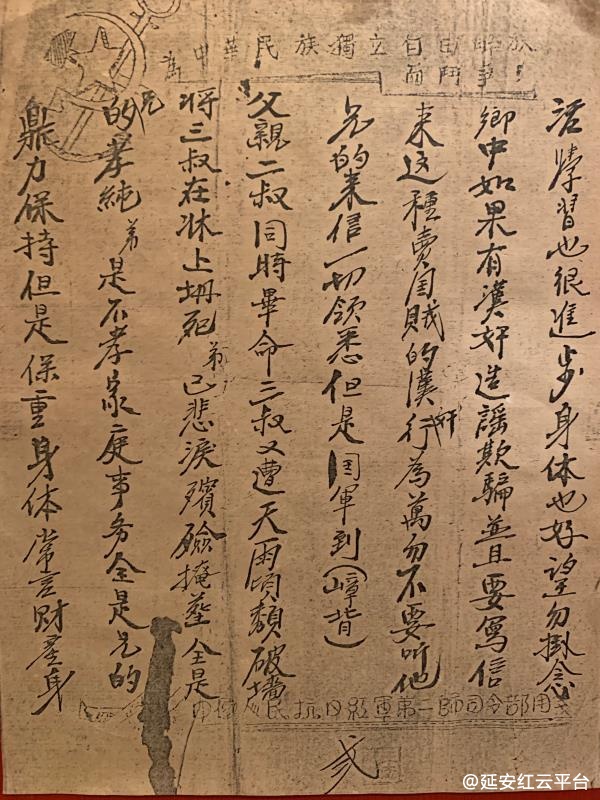 為中華民族獨立自由解放
而鬥爭!
活學習也很進步身体也好望勿掛念
鄉中如果有漢奸造謠欺騙並且要寫信
来这種賣国賊的漢奸行為萬勿不要听他
兄的来信一切領悉但是国軍到(嶂背)
父親二叔同時畢命三叔又遭天雨傾頹破墻
将三叔在牀上坍死弟已悲淚殯殮掩塟全是
兄的孝純弟是不孝家庭事务全是兄的
鼎力保持但是保重身体常言財產身
民抗日紅軍第一師司令部用箋
弍
@延安红云平台